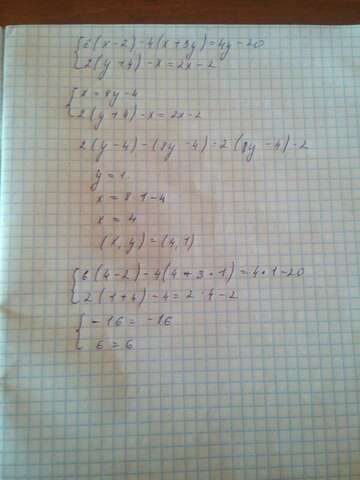 {6(x-2)-4(x+3y)=4y-20
{2(y+4)-x=2x-2
{x=8y-4
{2(y+4)-x=2x-2
2(y-4)-(8y-4)=2(8y-4)-2
y=1
x=8·1-4
x=4
(x,y)=(4,1)
{6(4-2)-4(4+3·1)=4·1-20
{2(1+4)-4=2·4-2
{-16=-16
{6=6